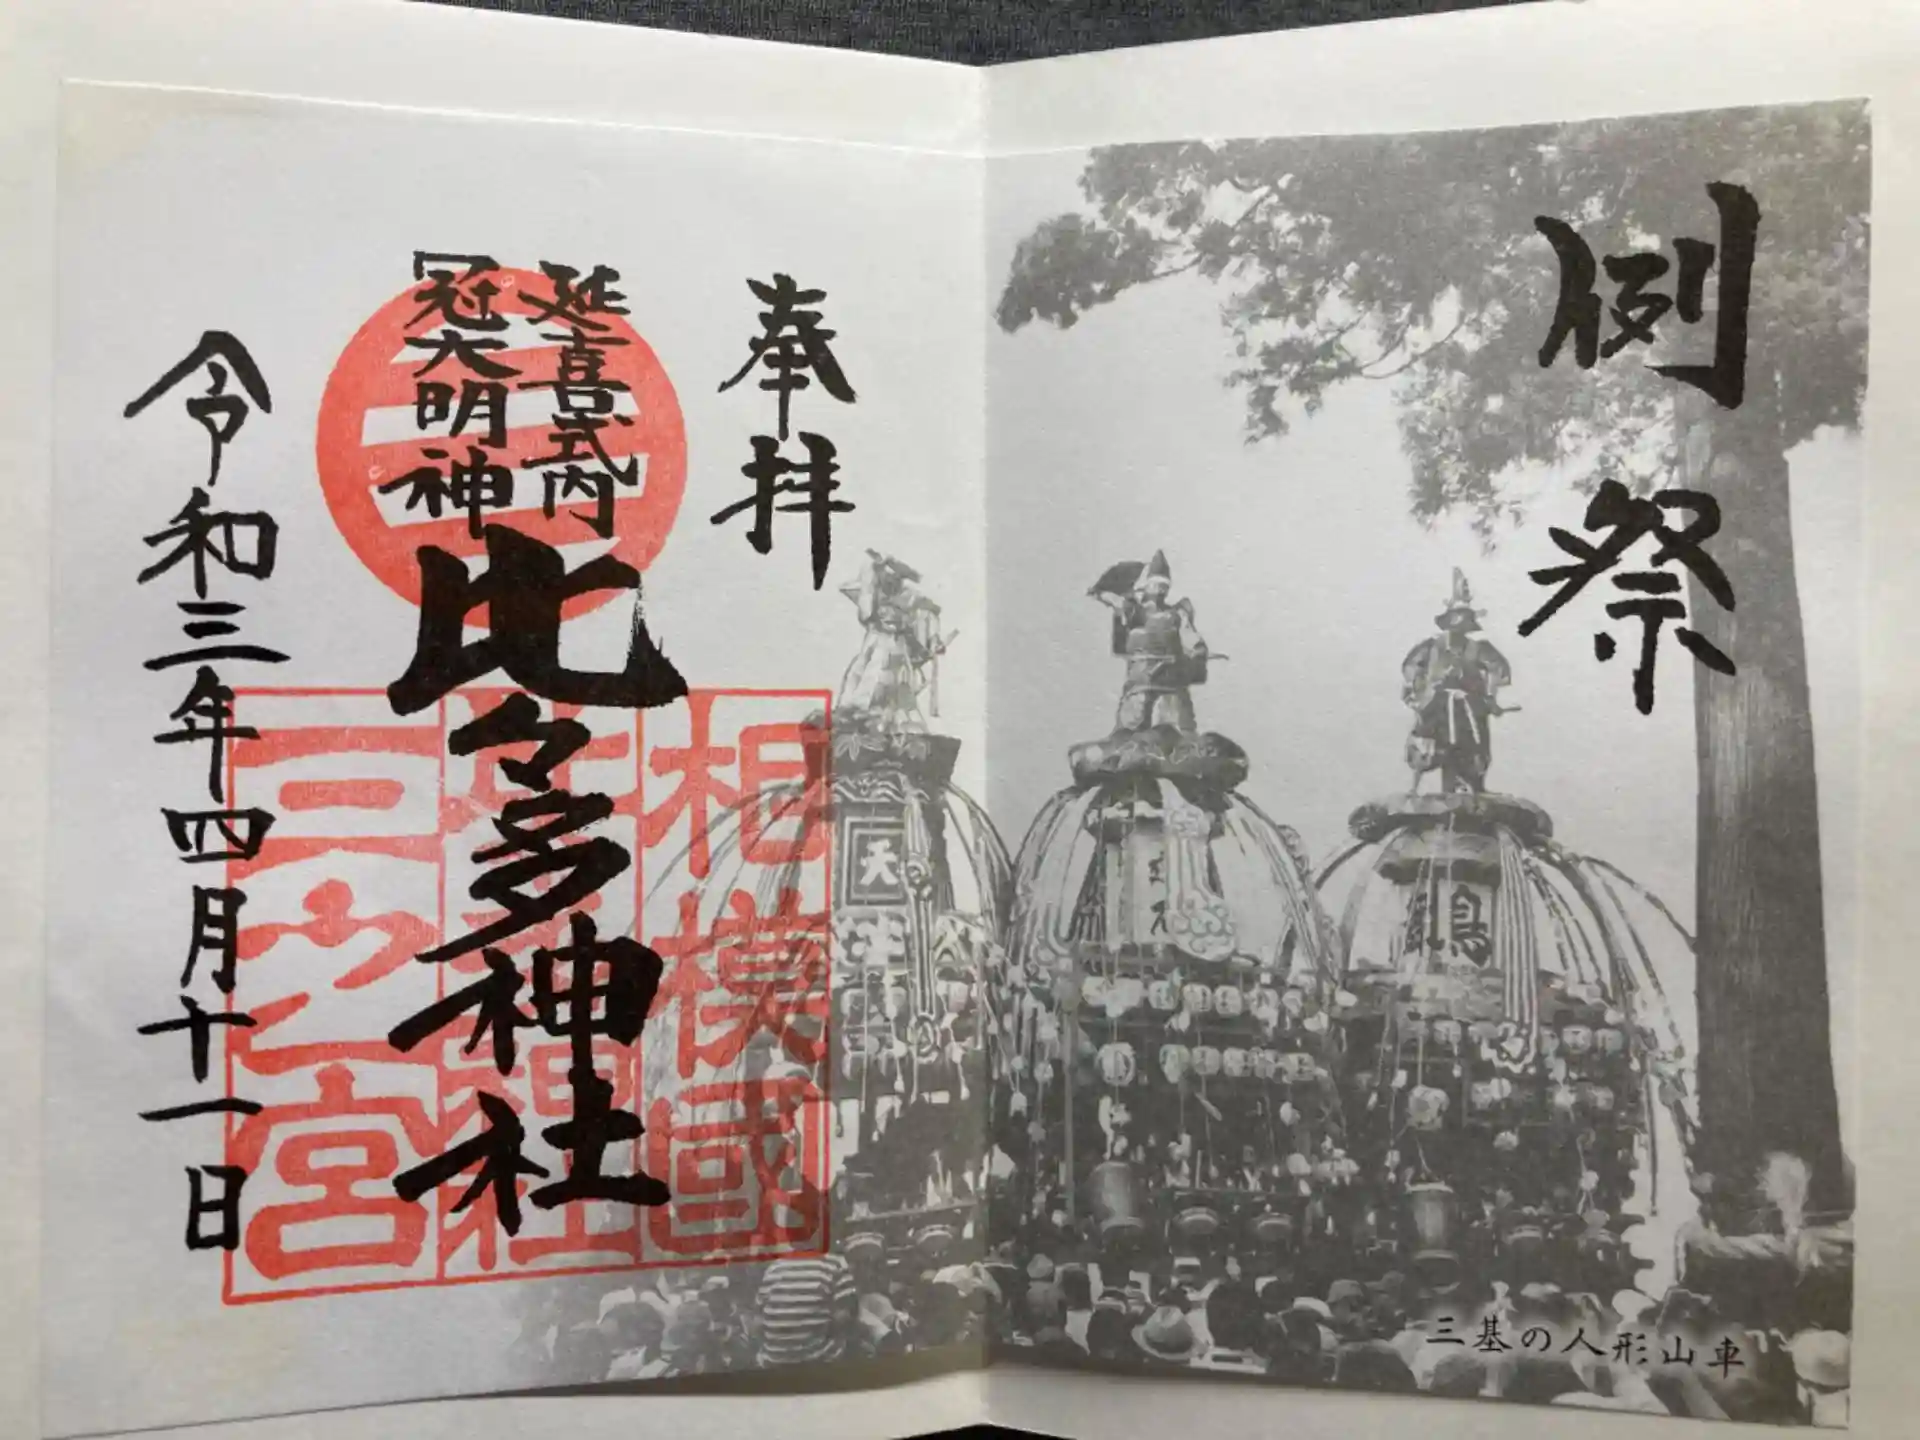 例祭
奉拝
延喜式内
冠大明神
比々多神社
令和三年四月十一日
相模國
三之宮
天
三基の人形山車